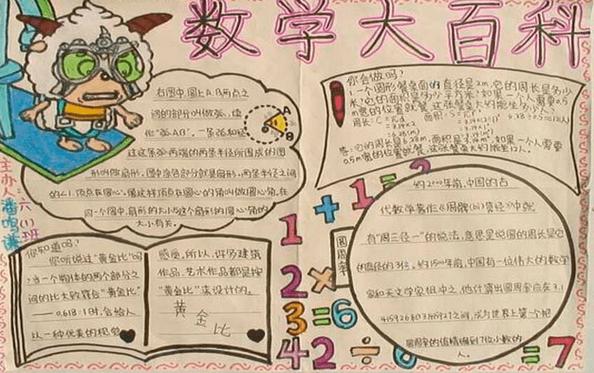 数学大百科
主办人:六(1)班
右图中,圆上A、B两点之
间的部分叫做弧,读
作“弧AB”,一条弧和经
过这条弧两端的两条半径所围成的图
形叫做扇形。图中涂色部分就是扇形,两条半径之间
的∠1,顶点在圆心,像这样顶点在圆心的角叫做圆心角,在
同一个圆中,扇形的大小与这个扇形的圆心角的
大小有关。
A
B
你会做吗?
1、一个圆形餐桌面的直径是2m,它的周长是多少
米?它的面积是多少平方米?如果一个人需要0.5
m宽的位置就餐,这张餐桌大约能坐多少人?
答:它的周长是6.28m,面积是3.14㎡,如果一个人需要
0.5m宽的位置就餐,这张餐桌大约能坐12人。
你知道吗?
你听说过“黄金比”吗
?当一个物体的两个部分之
间的比大致符合“黄金比”
——0.618:1时,会给人
以一种优美的视觉
感觉。所以,许多建筑
作品、艺术作品都是按
“黄金比”来设计的。
黄
金
比
圆周率
约2000年前,中国的古
代数学著作《周髀算经》中就
有“周三径一”的说法,意思是说圆的周长是它
的直径的3倍。约1500年前,中国有一位伟大的数学
家和天文学家祖冲之,他计算出圆周率应在3.1
415926和3.1415927之间,成为世界上第一个把
圆周率的值精确到7位小数的
人。
1+1=2
2×
3=6
42÷6=7